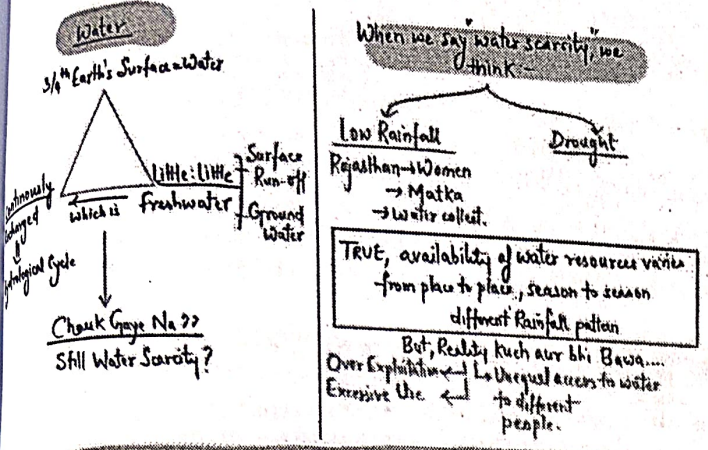 Water
3/4th Earth's Surface=Water
Little:Little
freshwater
Surface
Run-off
Ground
Water
which is
Continously
Hydrological Cycle
Chauk Gaye Na??
Still Water Scarcity?
When we say "water scarcity", we
think:-
Low Rainfall
Rajasthan→Women
→ Matka
→ Water collect.
Drought
TRUE, availability of water resources varies
from place to place, season to season
different Rainfall pattern
But, Reality kuch aur bhi Bawa....
Over Exploitation
Excessive Use
Unequal access to water
to different
people.